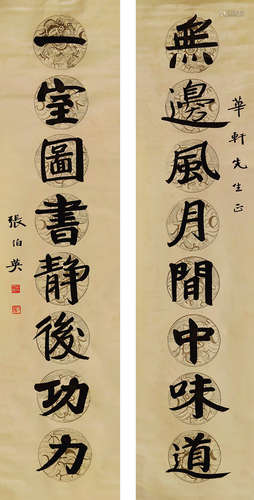 華軒先生正
無邊風月閒中味道
一室圖書静後功力
張伯英